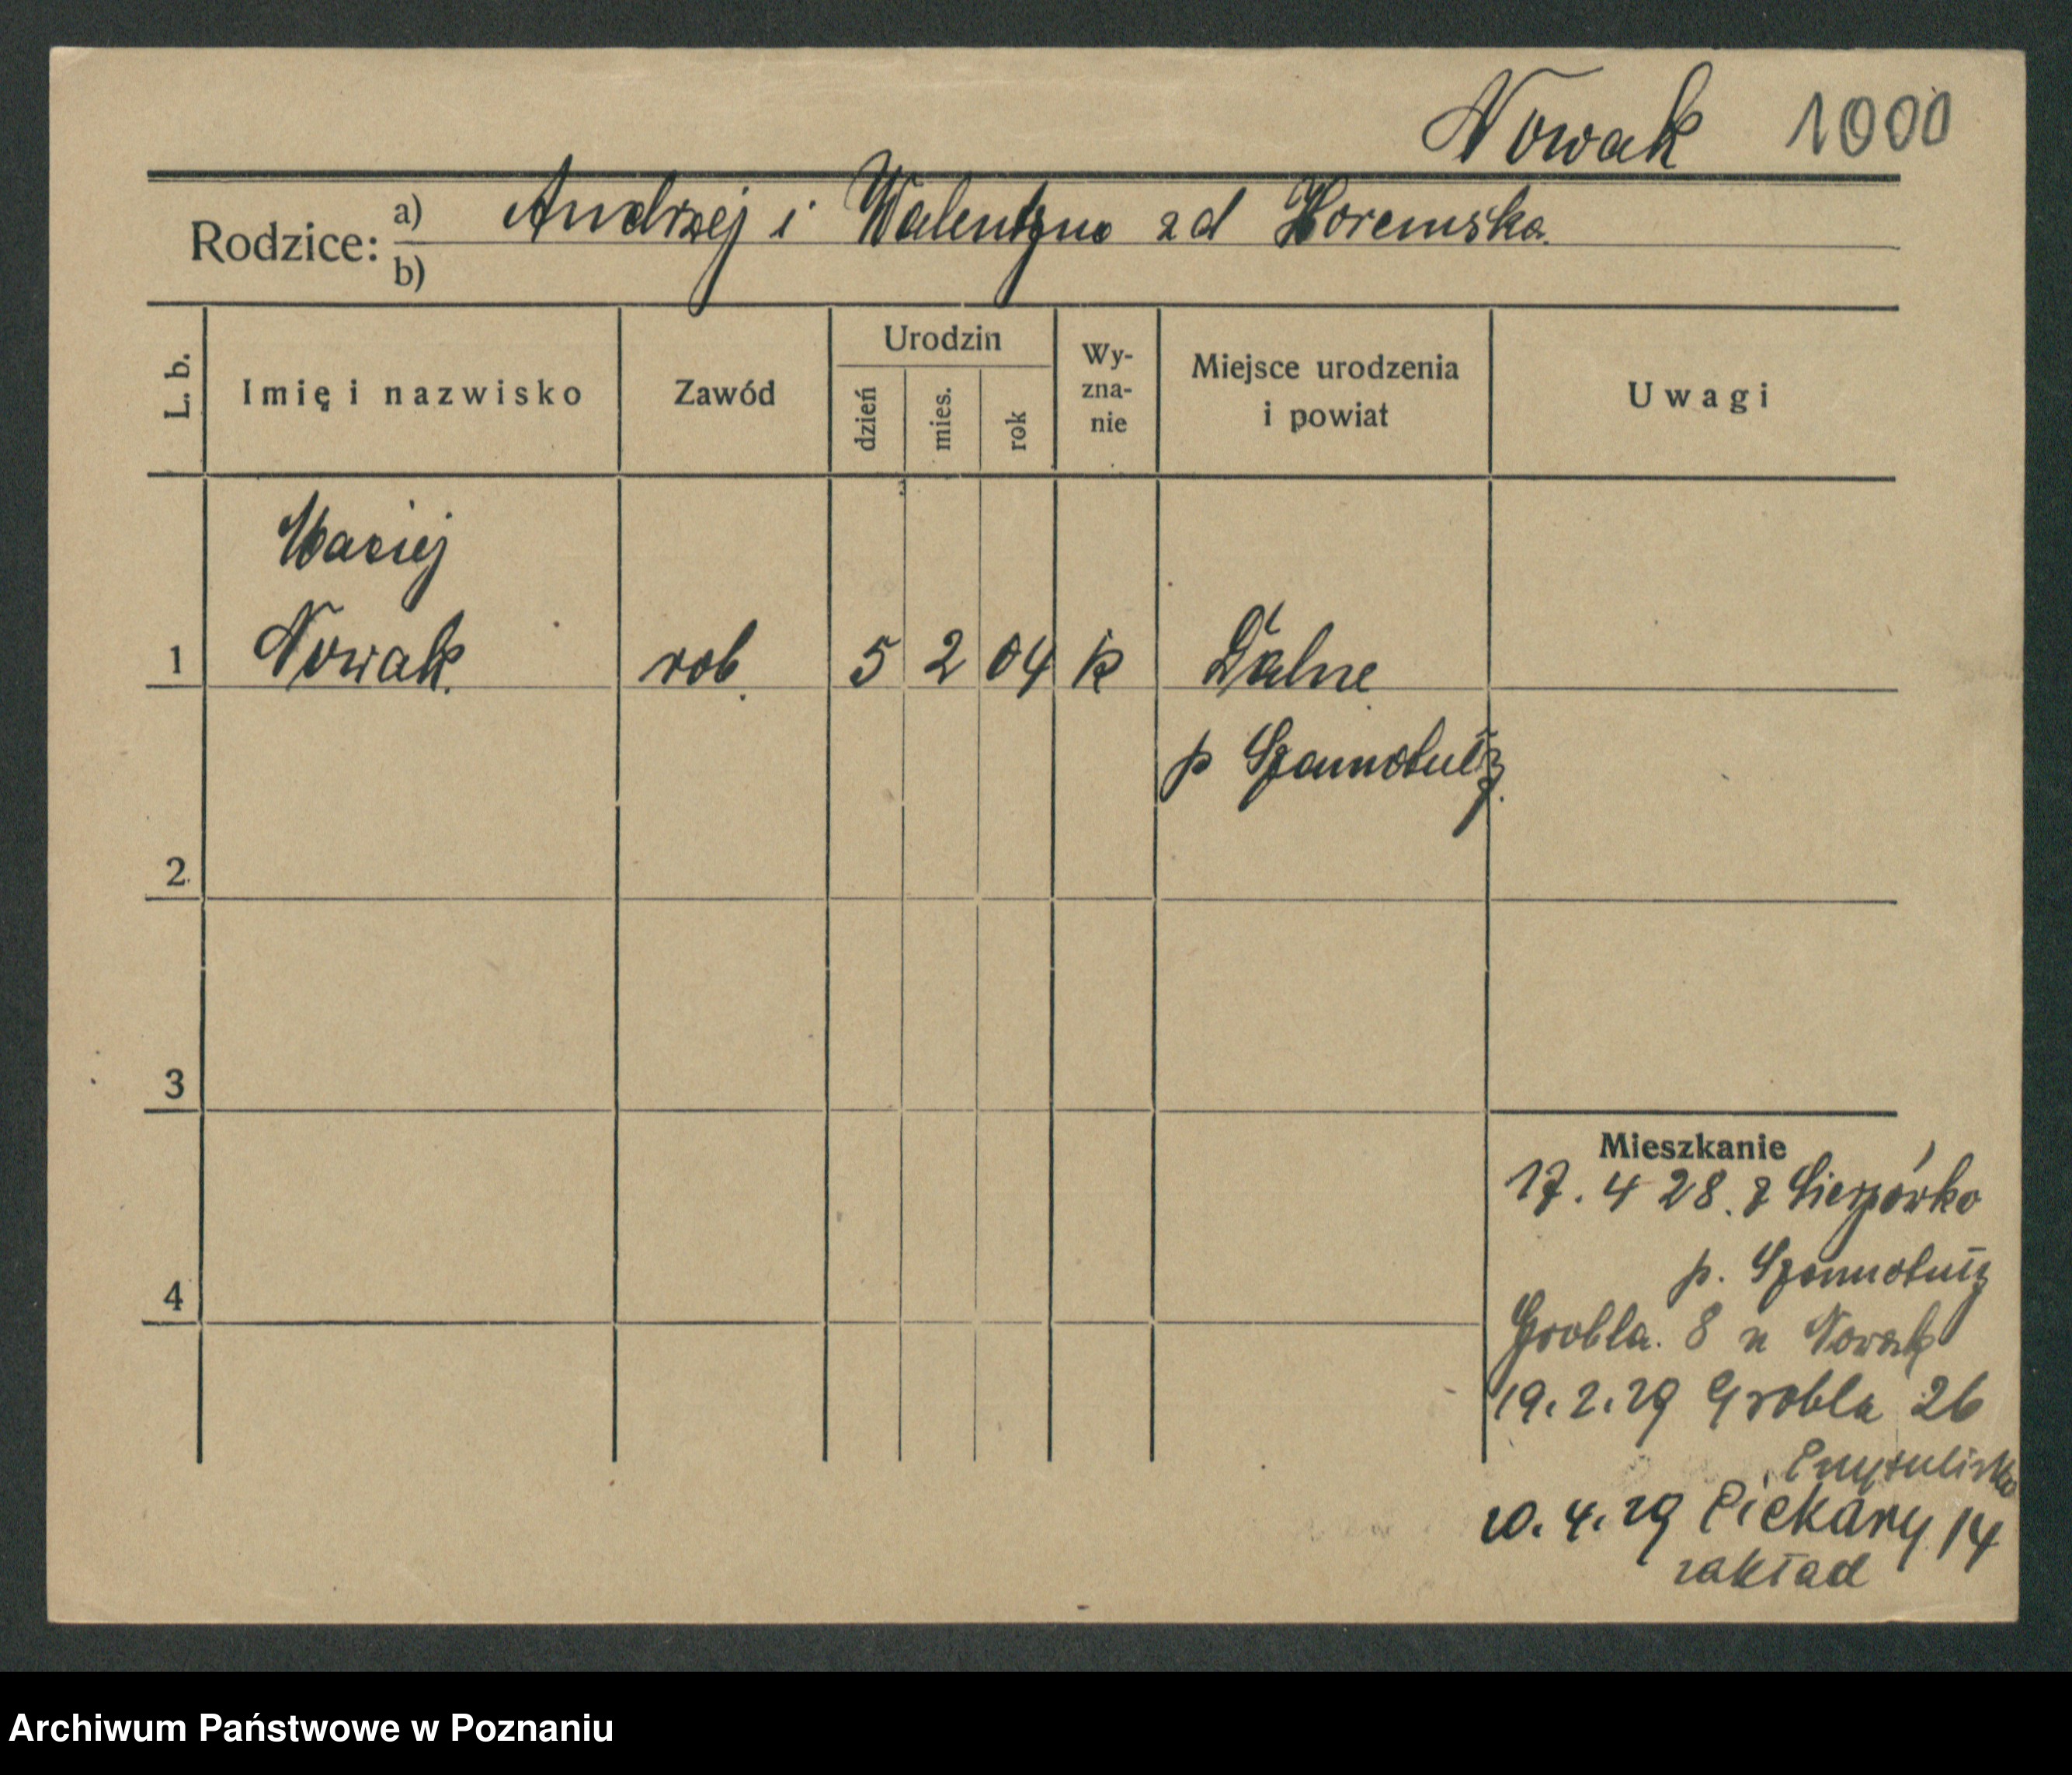 Nowak 1000
Rodzice: a) Andrzej i Walentyna zd Zoremska
b)
L. b.
Imię i nazwisko
Zawód
Urodzin
dzień
mies.
rok
Wy-
zna-
nie
Miejsce urodzenia
i powiat
Uwagi
Maciej
1 Nowak rob. 5 2 04 k Żalne
p Szamotuły
2
3
4
Mieszkanie
17. 4 28. z Sierpówko
p. Szamotuły
Grobla. 8 u Nowak
19. 2. 29 Grobla 26
Przytulisko
20. 4. 29 Piekary 14
zakład
Archiwum Państwowe w Poznaniu